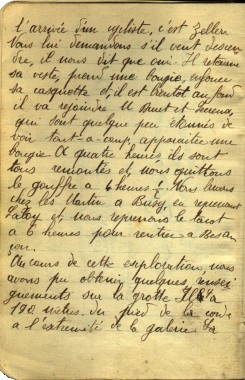 l'arrivée d'un cycliste, c'est Zeller
Nous lui demandons s'il veut descen
dre, il nous dit que oui. Il retourne
sa veste, prend une bougie, enfonce
sa casquette et il est bientôt au fond
il va rejoindre
qui sont quelque peu étonnés de
voir tout-à-coup apparaître une
bougie. A quatre heures ils sont
tous remontés et nous quittons
le gouffre à 6 heures !
chez les Martin à Busy, en reprenant
et nous reprenons le tacot
à heures pour rentrer à Besan
çon.
Au cours de cette exploration, nous
avons pu obtenir quelques rensei
gnements sur la grotte. Il y a
190 mètres du pied de la corde
à l'extrémité de la galerie. La